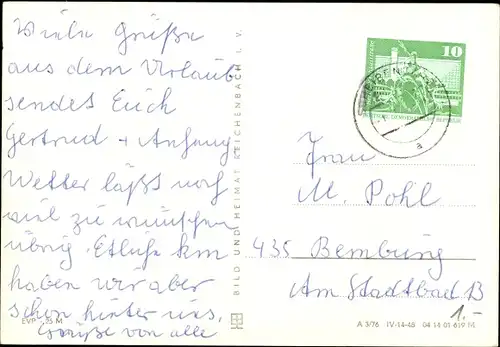 Viele Grüße
aus dem Urlaub
sendet Euch
Gertrud + Anhang
Wetter läßt noch
viel zu wünschen
übrig. Etliche km
haben wir aber
schon hinter uns.
Grüße von alle
EVP M
BILD UND HEIMAT REICHENBACH I. V.
10
DEUTSCHE DEMOKRATISCHE REPUBLIK
a
Frau
M. Pohl
435 Bernburg
Am Stadtbad 13
1.-
A 3/76 IV-14-48 04 14 01 619 M